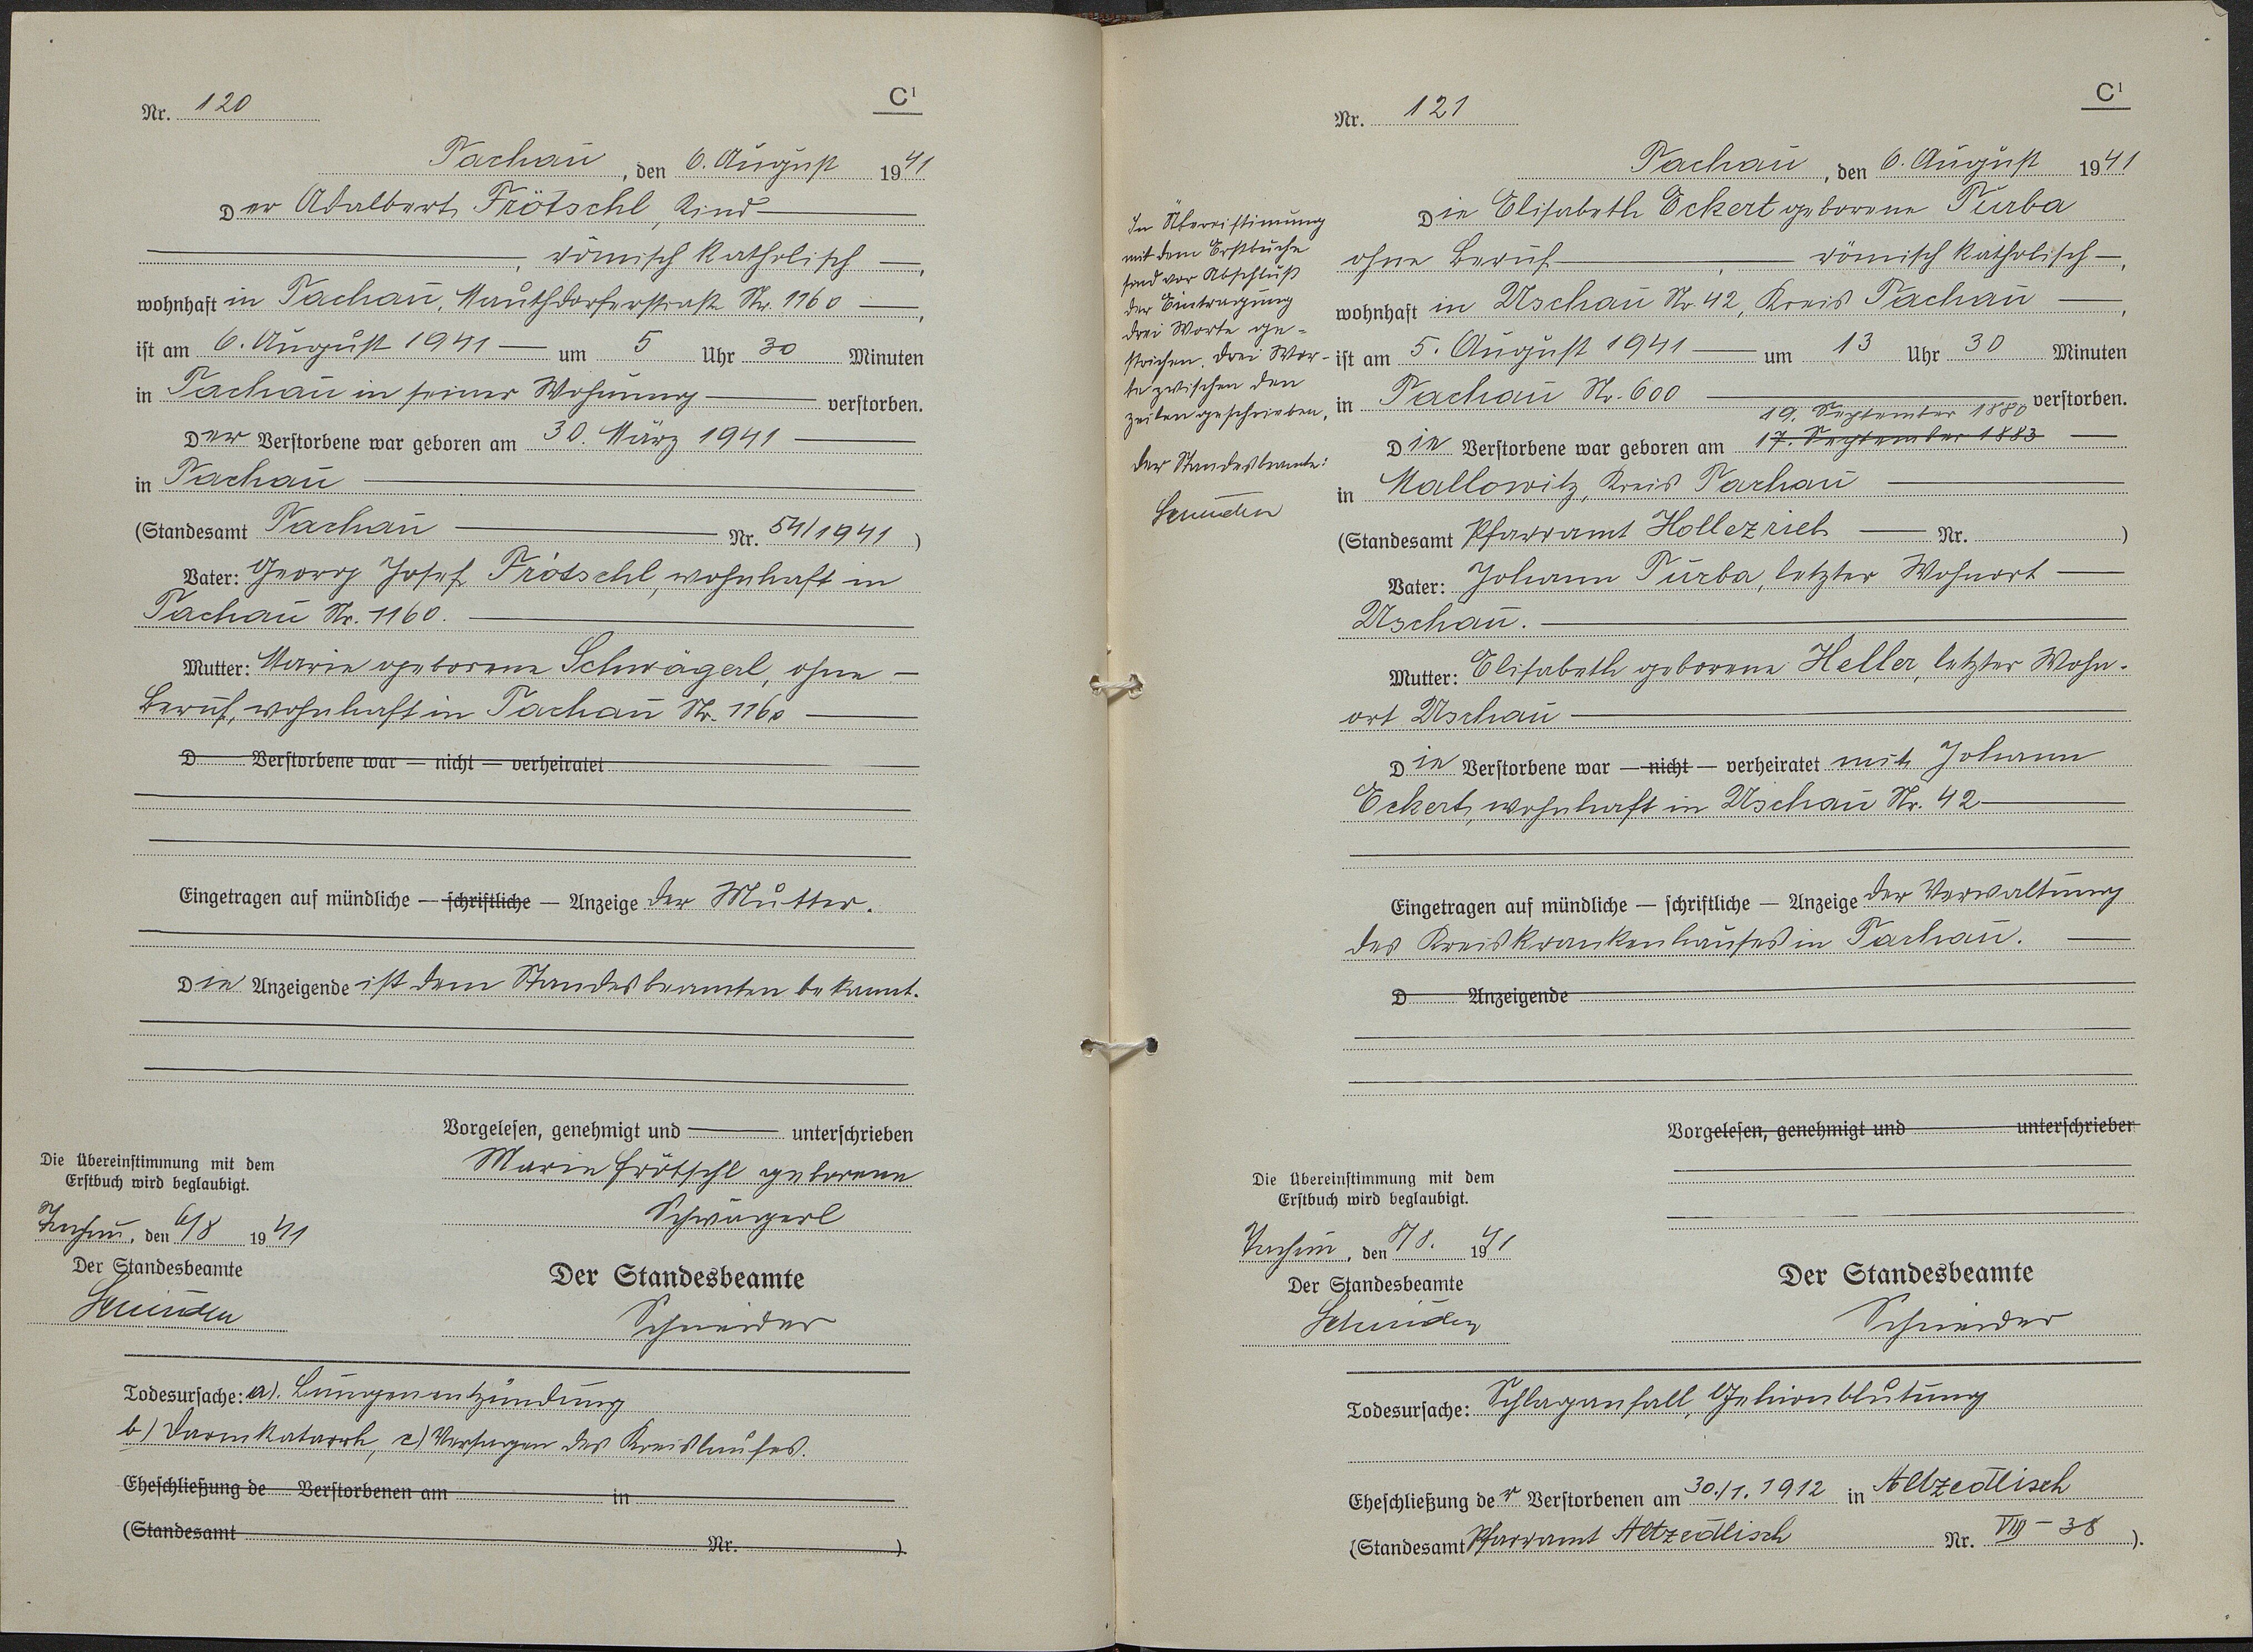 C¹
Nr. 120
Tachau, den 6. August 1941
Der Adalbert Frötschl, Kind
, römisch katholisch,
wohnhaft in Tachau, Mauthdorferstraße Nr. 1160,
ist am 6. August 1941 um 5 Uhr 30 Minuten
in Tachau in seiner Wohnung verstorben.
Der Verstorbene war geboren am 30. März 1941
in Tachau
(Standesamt Tachau Nr. 54/1941)
Vater: Georg Josef Frötschl, wohnhaft in
Tachau Nr. 1160.
Mutter: Marie geborene Schwägerl, ohne
Beruf, wohnhaft in Tachau Nr. 1160
D Verstorbene war — nicht — verheiratet
Eingetragen auf mündliche — schriftliche — Anzeige der Mutter.
Die Anzeigende ist dem Standesbeamten bekannt.
Vorgelesen, genehmigt und unterschrieben
Marie Frötschl geborene
Schwägerl
Die Übereinstimmung mit dem
Erstbuch wird beglaubigt.
Tachau, den 6/8 1941
Der Standesbeamte
Der Standesbeamte
Schneider
Todesursache: a). Lungenentzündung
b) Darmkatarrh, c) Versagen des Kreislaufes.
Eheschließung de Verstorbenen am in
(Standesamt Nr. )
C¹
Nr. 121
Tachau, den 6. August 1941
Die Elisabeth Eckert geborene Turba
ohne Beruf, römisch katholisch,
wohnhaft in Uschau Nr. 42, Kreis Tachau,
ist am 5. August 1941 um 13 Uhr 30 Minuten
in Tachau Nr. 600 verstorben.
19. September 1880
Die Verstorbene war geboren am 17. September 1883
in Mallowitz, Kreis Tachau
(Standesamt Pfarramt Hollezrieb Nr. )
Vater: Johann Turba, letzter Wohnort
Uschau.
Mutter: Elisabeth geborene Heller, letzter Wohn-
ort Uschau
Die Verstorbene war — nicht — verheiratet mit Johann
Eckert, wohnhaft in Uschau Nr. 42
Eingetragen auf mündliche — schriftliche — Anzeige der Verwaltung
des Kreiskrankenhauses in Tachau.
D Anzeigende
Vorgelesen, genehmigt und unterschrieben
In Übereistimung
mit dem Erstbuche
sind vor Abschluß
der Eintragung
drei Worte ge-
strichen. Drei Wor-
te zwischen den
Zeilen geschrieben,
Der Standesbeamte:
Die Übereinstimmung mit dem
Erstbuch wird beglaubigt.
Tachau, den 8/8. 1941
Der Standesbeamte
Der Standesbeamte
Schneider
Todesursache: Schlaganfall, Gehirnblutung
Eheschließung der Verstorbenen am 30./1. 1912 in Altzedlisch
(Standesamt Pfarramt Altzedlisch Nr. VIII - 38).